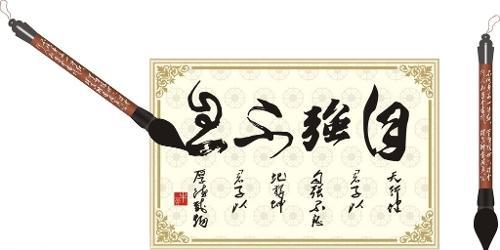 自強不息
天行健
君子以
自強不息
地勢坤
君子以
厚德載物